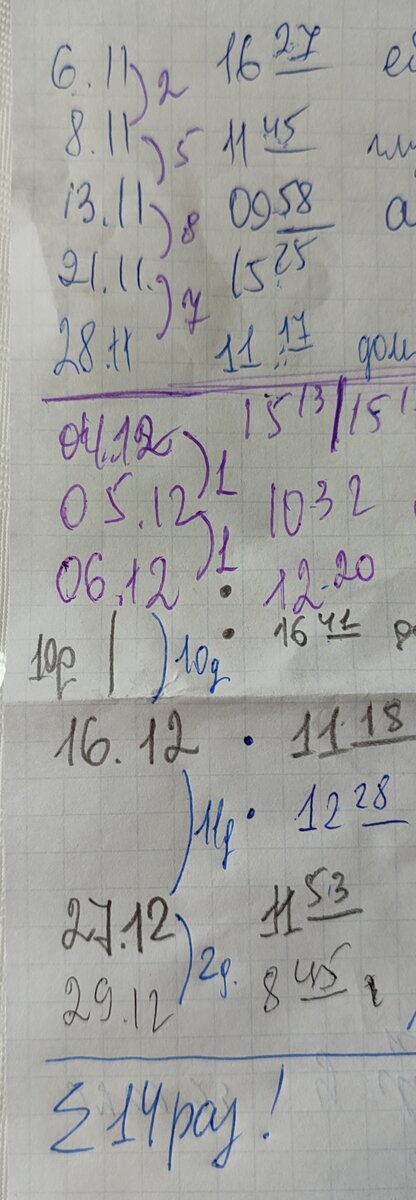 6.11 ) 2 16 27
8.11 ) 5 11 45
13.11 ) 8 09 58
21.11. ) 7 15 25
28.11 11 17
04.12 ) 1 15 13 / 15
05.12 ) 1 10 32
06.12 • 12-20
) 10д • 16 41
16.12 • 11 18
) 11д • 12 28
27.12 ) 2д. 11 53
29.12 8 45
Σ 14 раз!